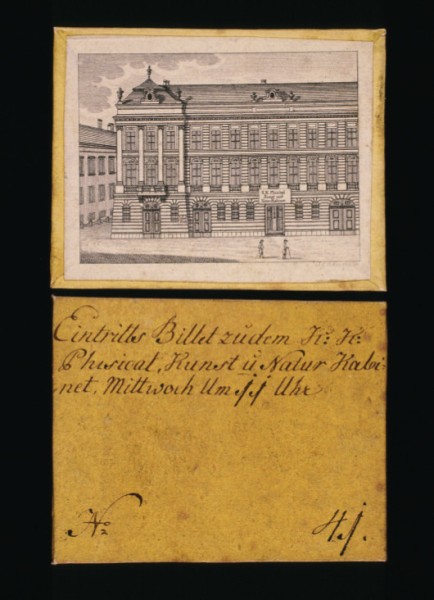 K.K. Phisical
Kunst und
Eintritts Billet zu dem K: K:
Phisical, Kunst ũ Natur Kabi:
net, Mittwoch Um 11 Uhr.
No 41.